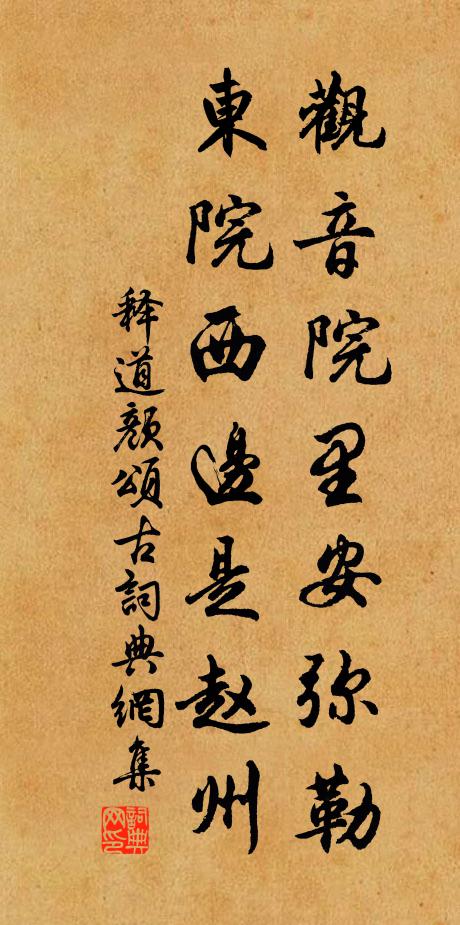 觀音院里安弥勒
東院西邊是赵州
释道顏頌古詞典網集
詞典网印